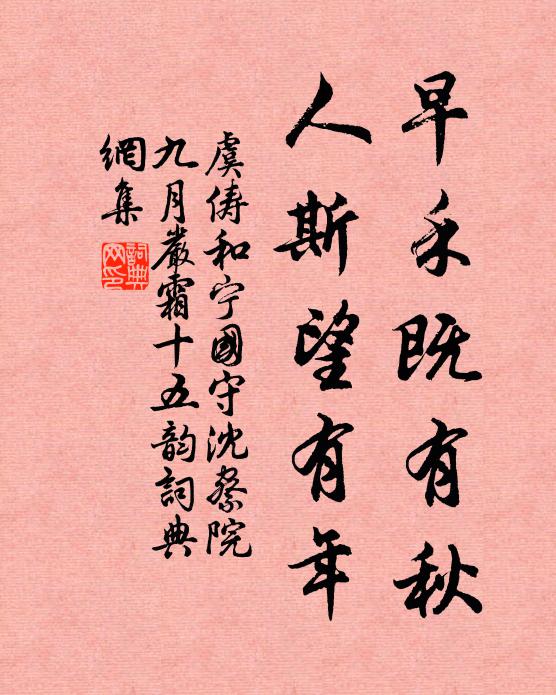 早禾既有秋
人斯望有年
虞俦和宁國守沈察院
九月嚴霜十五韵詞典
網集
詞典
网印